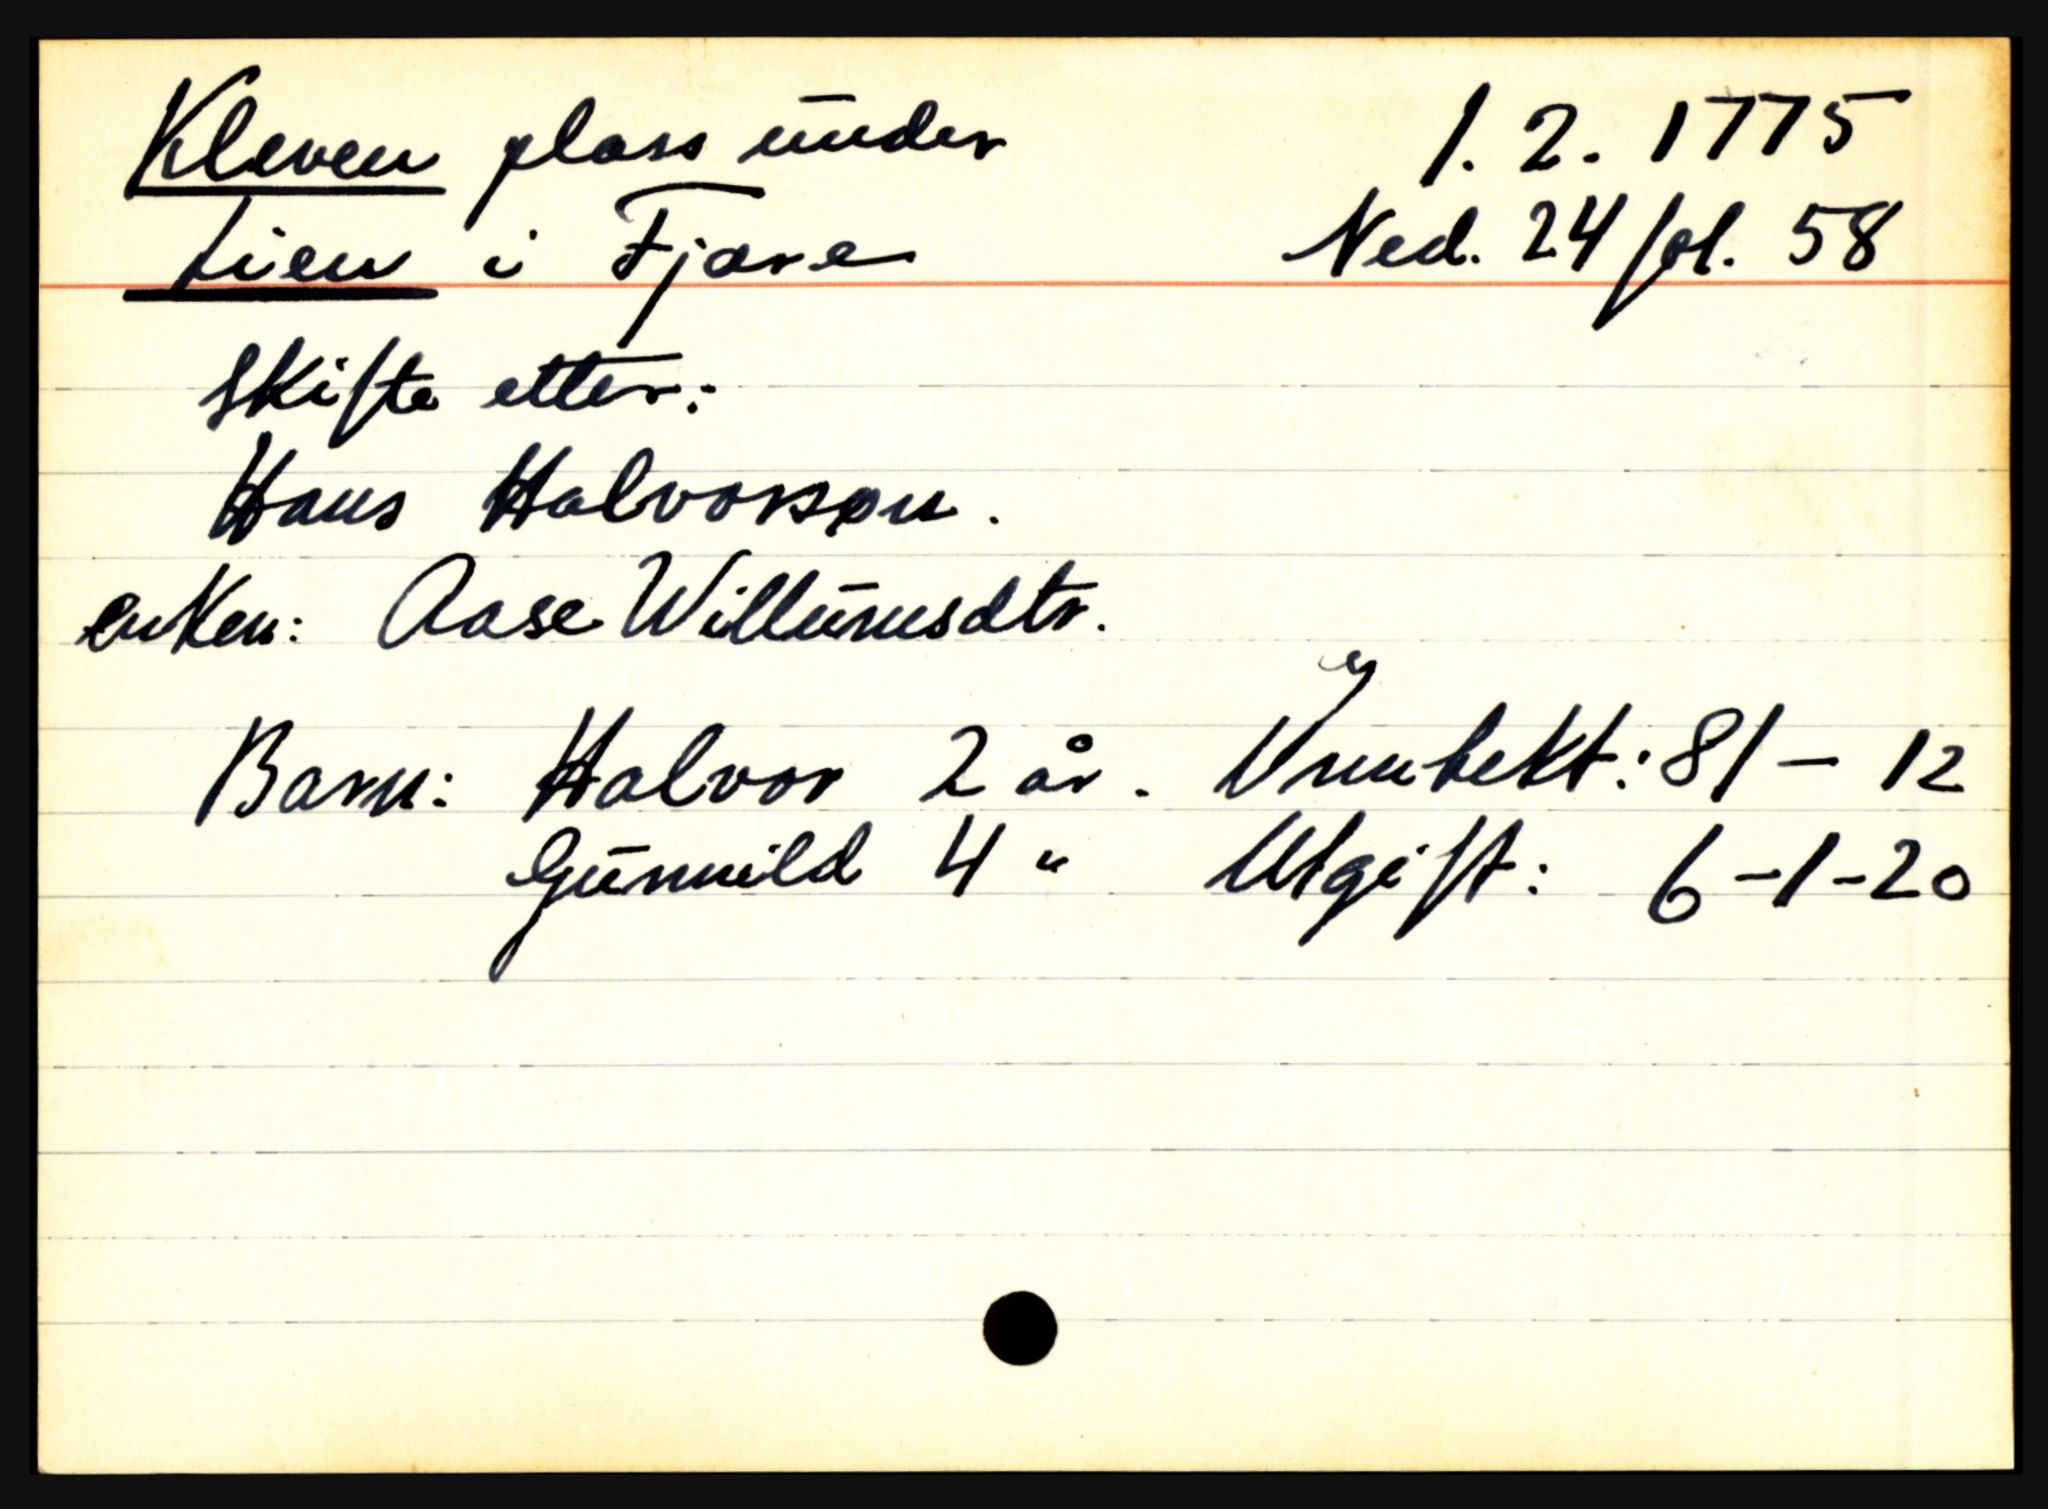 Kleven plass under 1.2.1775
Lien i Fjære Ned. 24 fol. 58
Skifte etter:
Hans Halvorsøn.
enken: Aase Willumsdtr.
Barn: Halvor 2 år. 81 - 12
Gunnild 4 " Utgift: 6-1-20